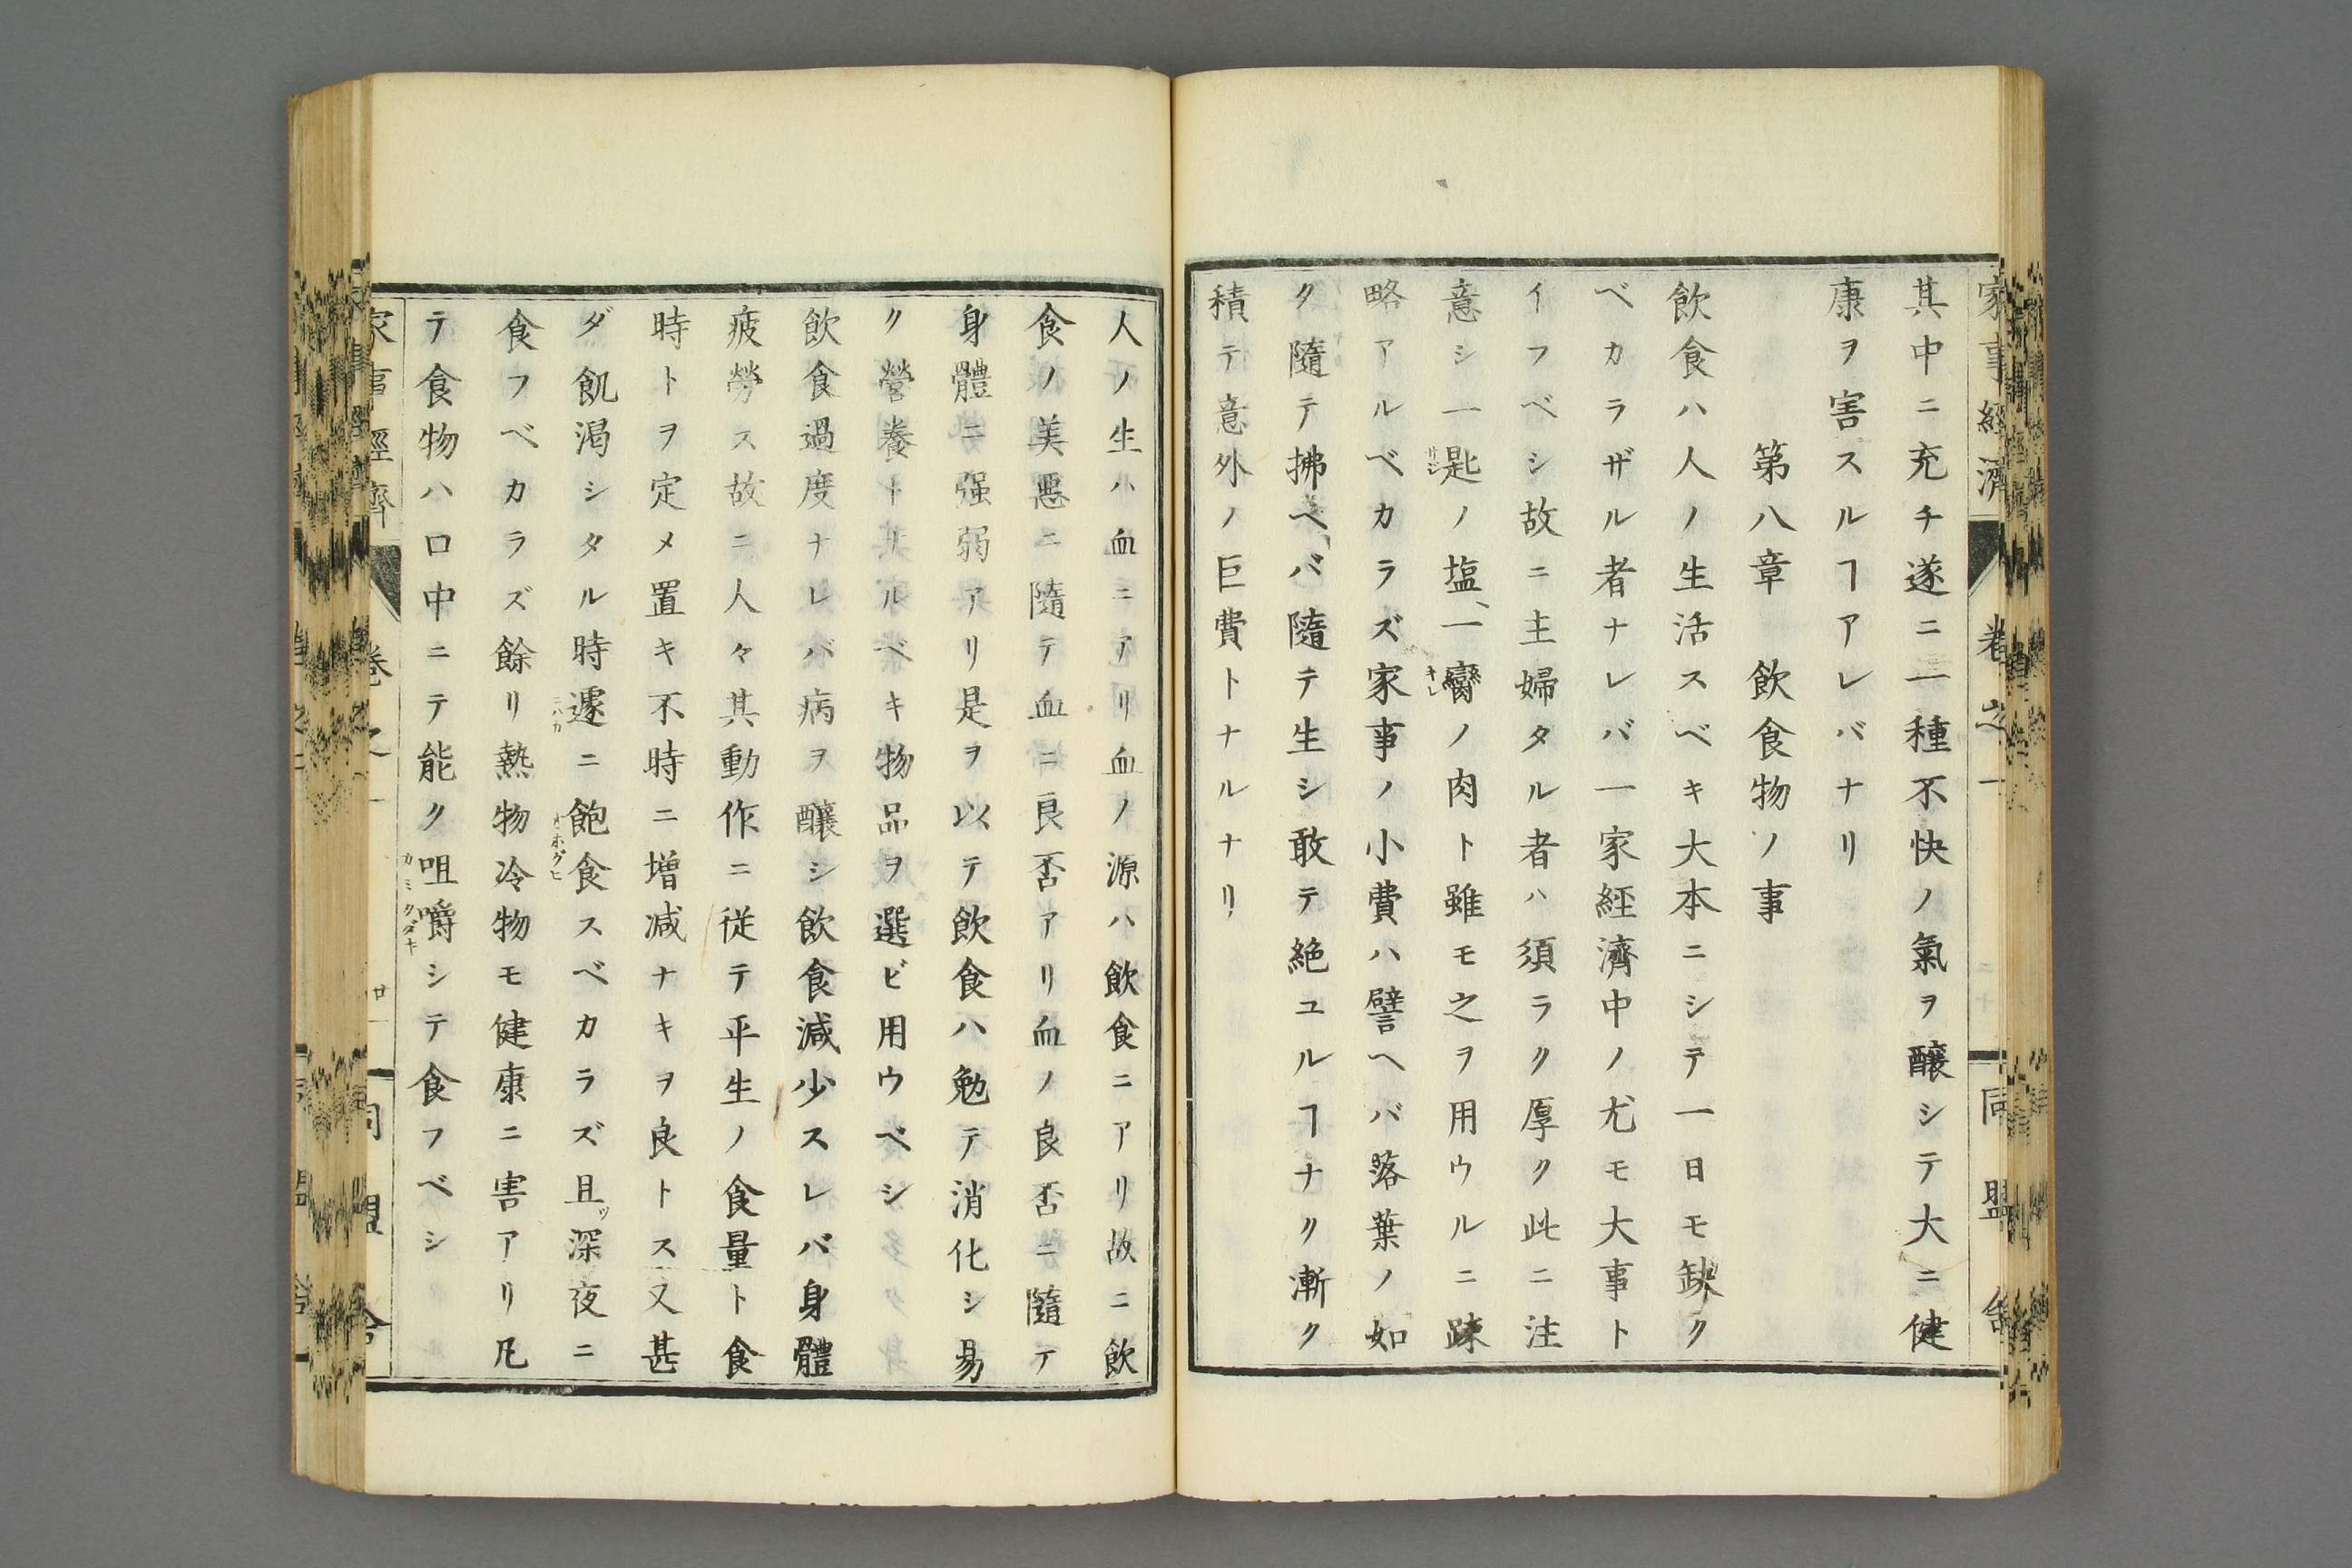 家事經濟 卷之一 二十 同盟舎
其中ニ充チ遂ニ一種不快ノ氣ヲ釀シテ大ニ健
康ヲ害スルヿアレバナリ
第八章 飲食物ノ事
飲食ハ人ノ生活スベキ大本ニシテ一日モ缺ク
ベカラザル者ナレバ一家経濟中ノ尤モ大事ト
イフベシ故ニ主婦タル者ハ須ラク厚ク此ニ注
意シ一匙ノ塩、一臠ノ肉ト雖モ之ヲ用ウルニ踈
略アルベカラズ家事ノ小費ハ譬ヘバ落葉ノ如
ク隨テ拂ヘバ隨テ生シ敢テ絶ユルヿナク漸ク
積テ意外ノ巨費トナルナリ
人ノ生ハ血ニアリ血ノ源ハ飲食ニアリ故ニ飲
食ノ美惡ニ隨テ血ニ良否アリ血ノ良否ニ隨テ
身體ニ强弱アリ是ヲ以テ飲食ハ勉テ消化シ易
ク營養トナルベキ物品ヲ選ビ用ウベシ
飲食過度ナレバ病ヲ釀シ飲食減少スレバ身體
疲勞ス故ニ人々其動作ニ従テ平生ノ食量ト食
時トヲ定メ置キ不時ニ増減ナキヲ良トス又甚
ダ飢渇シタル時遽ニ飽食スベカラズ且ツ深夜ニ
食フベカラズ餘リ熱物冷物モ健康ニ害アリ凡
テ食物ハ口中ニテ能ク咀嚼シテ食フベシ
家事經濟 卷之一 廿一 同盟舎